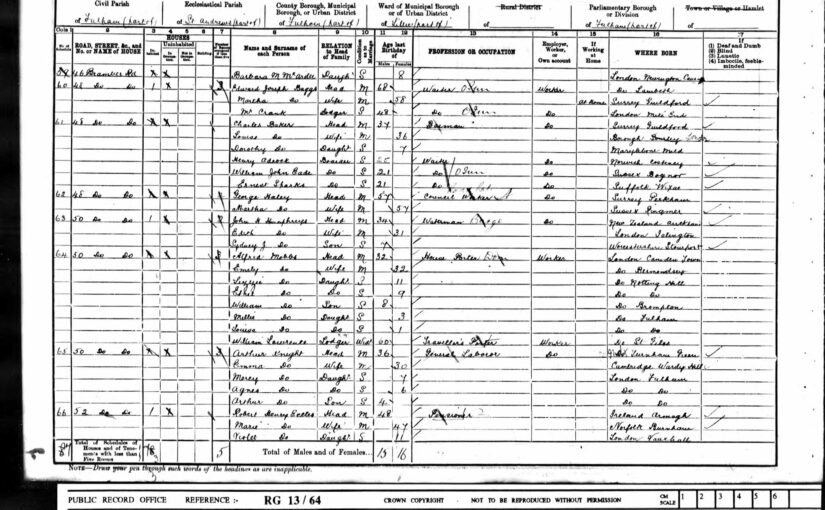 Civil Parish Ecclesiastical Parish County Borough, Municipal Borough, or Urban District Ward of Municipal Borough or of Urban District Rural District Parliamentary Borough or Division Town or Village or Hamlet
of Fulham (part of) of St Andrews (part of) of Fulham (part of) of of of Fulham (part of) of
Cols 1 2 3 4 5 6 7 8 9 10 11 12 13 14 15 16 17
ROAD, STREET, &c., and No. or NAME of HOUSE HOUSES Uninhabited Name and Surname of each Person RELATION to Head of Family Age last Birthday of PROFESSION OR OCCUPATION Employer, Worker, or Own account If Working at Home WHERE BORN (1) Deaf and Dumb (2) Blind (3) Lunatic (4) Imbecile, feeble-minded
46 Bramber Rd Barbara M McArdle Daughr S 8 London Newington
60 48 Do Do 1 Edward Joseph Head M 68 Worker Do Lambeth
Martha Do Wife M 58 At Home Surrey Guildford
Mr Crank Lodger S 48 Do Do London Mile End
61 48 Do Do Charles Baker Head M 37 Do Surrey Guildford
Louisa Do Wife M 36
Dorothy Do Daught S 7 Marylebone
Henry Adcock Boarder S Do Norwich
William John Do S 21 Do Do Sussex Bognor
Ernest Sparks Do S 21 Do Do Suffolk
62 48 Do Do George Haley Head M 57 Council Worker Do Surrey Peckham
Martha Do Wife M 57 Sussex Ringmer
63 50 Do Do 1 John H Humphreys Head M 34 Waterman Do New Zealand
Edith Do Wife M 31 London Islington
Sydney J Do Son S 7 Worcestershire Stourport
64 50 Do Do Alfred Mobbs Head M 32 House Porter Worker London Camden Town
Emily Do Wife M 32 Do Bermondsey
Do Daught S 11 Do Notting Hill
Do Do S 9 Do Do
William Do Son S 8 Do Brompton
Millie Do Daught S 3 Do Fulham
Louisa Do Do S 1 Do Do
William Lawrence Lodger Wid 60 Traveller's Porter Worker Do St Giles
65 50 Do Do Arthur Knight Head M 36 General Laborer Do Turnham Green
Emma Do Wife M 30 Cambridge Wardy Hill
Mercy Do Daught S 7 London Fulham
Agnes Do Do S 6 Do Do
Arthur Do Son S 4 Do Do
66 52 Do Do 1 Robert Henry Eccles Head M 48 Pensioner Ireland Armagh
Marie Do Wife M 47 Norfolk Burnham
Violet Do Daught S 11 London Vauxhall
Total of Schedules of Houses and of Tenements with less than Five Rooms 5 Total of Males and of Females... 15 16
NOTE—Draw your pen through such words of the headings as are inapplicable.
PUBLIC RECORD OFFICE REFERENCE :- RG 13/64 CROWN COPYRIGHT - NOT TO BE REPRODUCED WITHOUT PERMISSION CM SCALE 1 2 3 4 5 6